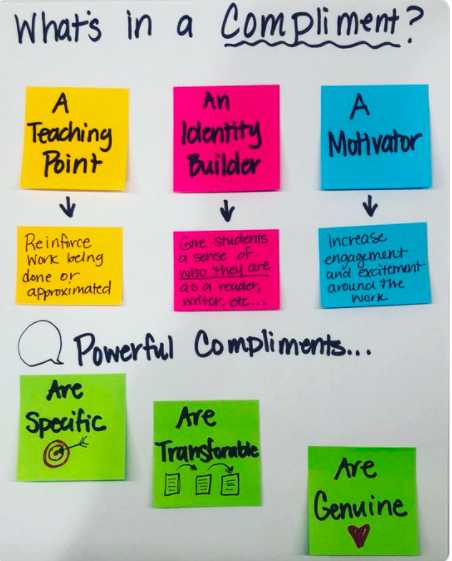 What's in a Compliment?
A
Teaching
Point
An
Identity
Builder
A
Motivator
Reinforce
work being
done or
approximated
Give students
a sense of
who they are
as a reader,
writer, etc...
Increase
engagement
and excitement
around the
work
Powerful Compliments...
Are
Specific
Are
Transferable
Are
Genuine